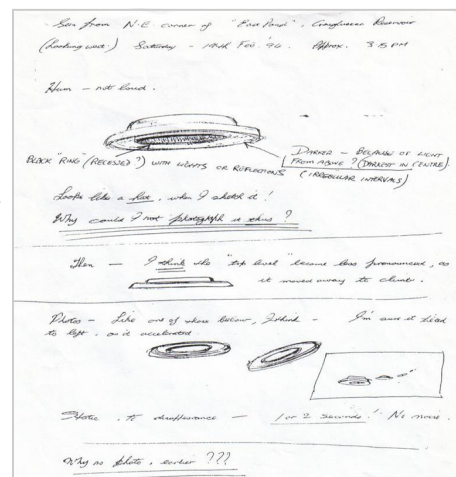 Seen from N.E. corner of "East Pond", Craigluscar Reservoir
(Looking west) Saturday - 19th Feb. '94. Approx. 3.15 PM
Hum - not loud.
BLACK "RING" (RECESSED?) WITH LIGHTS OR REFLECTIONS
DARKER - BECAUSE OF LIGHT
FROM ABOVE? (DARKEST IN CENTRE)
(IRREGULAR INTERVALS)
Looks like a hat, when I sketch it!
Why could I not photograph it thus?
Then - I think the "top level" became less pronounced, as
it moved away to climb.
Photos - Like one of these below, I think - I'm sure it tilted
to left, as it accelerated.
Static, to disappearance - 1 or 2 seconds! No more.
Why no photo, earlier ???